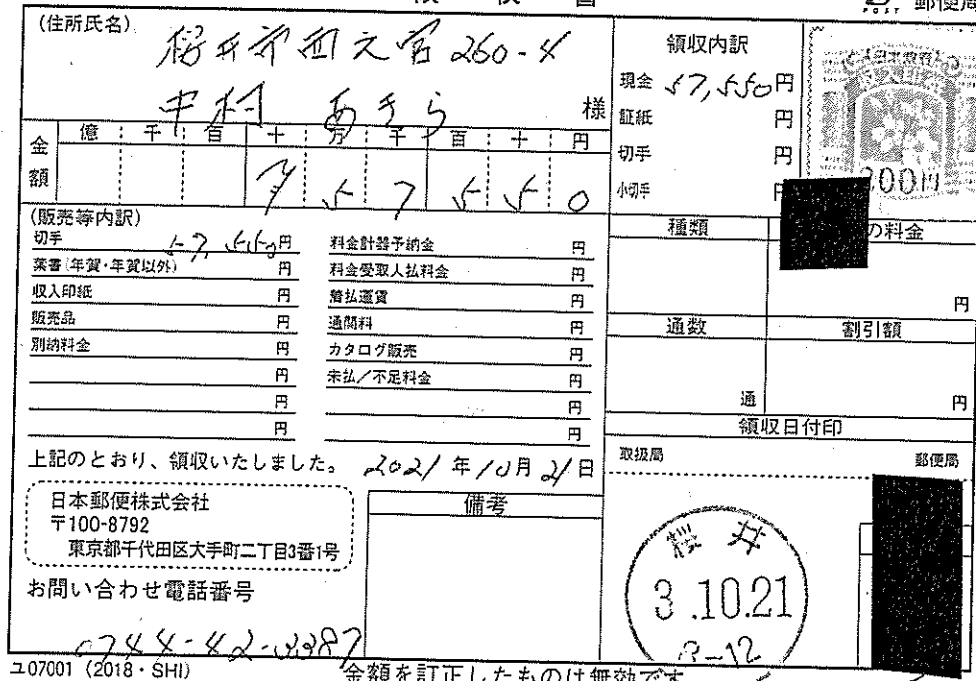 領収書
郵便局
(住所氏名)
桜井市西之宮260-4
中村 あきら 様
金額
億 千 百 十 万 千 百 十 円
¥ 5 7 5 5 0
領収内訳
現金 57,550円
証紙 円
切手 円
小切手 円
200円
(販売等内訳)
切手 57,550円
葉書(年賀・年賀以外) 円
収入印紙 円
販売品 円
別納料金 円
円
円
円
料金計器予納金 円
料金受取人払料金 円
着払運賃 円
通関料 円
カタログ販売 円
未払/不足料金 円
円
円
種類
の料金
円
通数
割引額
通
円
領収日付印
取扱局
郵便局
桜井
3.10.21
8-12
上記のとおり、領収いたしました。 2021年10月21日
日本郵便株式会社
〒100-8792
東京都千代田区大手町二丁目3番1号
備考
お問い合わせ電話番号
0744-42-3387
ユ07001 (2018・SHI)
金額を訂正したものは無効です